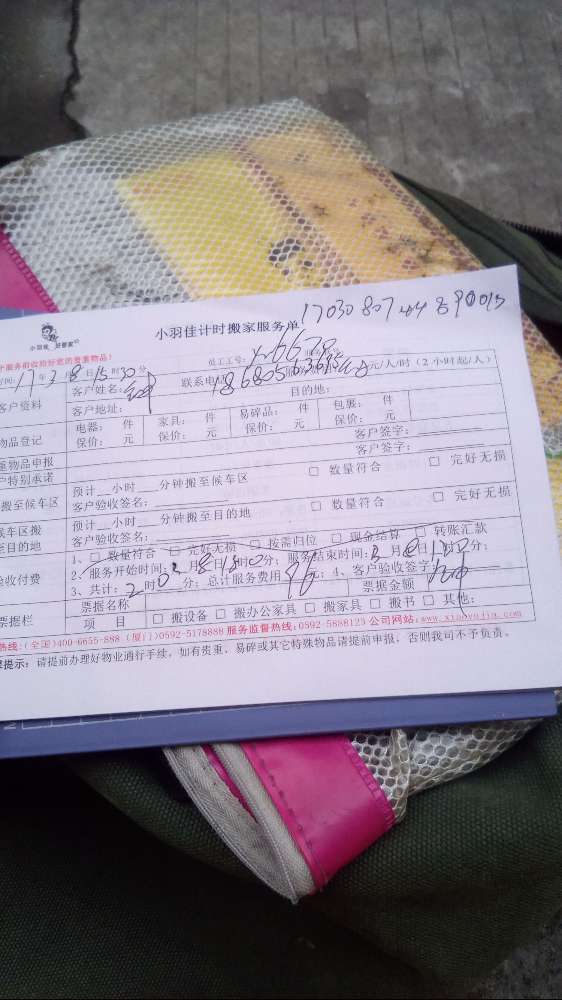 小羽佳 好管家
小羽佳计时搬家服务单
务前收拾好您的贵重物品)
员工工号: 6678
时间: 17年3月8日15时30分
客户资料 客户姓名: 联系电话: 元/人/时(2小时起/人)
客户地址: 目的地:
物品登记 电器: 件 家具: 件 易碎品: 件 包裹: 件
保价: 元 保价: 元 保价: 元 保价: 元
重物品申报 客户签字:
户特别承诺 客户签字:
搬至候车区 预计__小时___分钟搬至候车区 □ 数量符合 □ 完好无损
客户验收签名:
候车区搬至目的地 预计__小时___分钟搬至目的地 □ 数量符合 □ 完好无损
客户验收签名:
验收付费 1、□ 数量符合 □ 完好无损 □ 按需归位 □ 现金结算 □ 转账汇款
2、服务开始时间: 月8日 时 分; 服务结束时间: 月8日 时 分;
3、共计: 2时 分; 总计服务费用 元; 4、客户验收签字
票据栏 票据名称 票据金额
项 目 □ 搬设备 □ 搬办公家具 □ 搬家具 □ 搬书 □ 其他:
热线:(全国)400-6655-888 (厦门)0592-5178888 服务监督热线:0592-5888123 公司网站:www.xiaoyujia.com
提示: 请提前办理好物业通行手续, 如有贵重、易碎或其它特殊物品请提前申报, 否则我司不予负责。